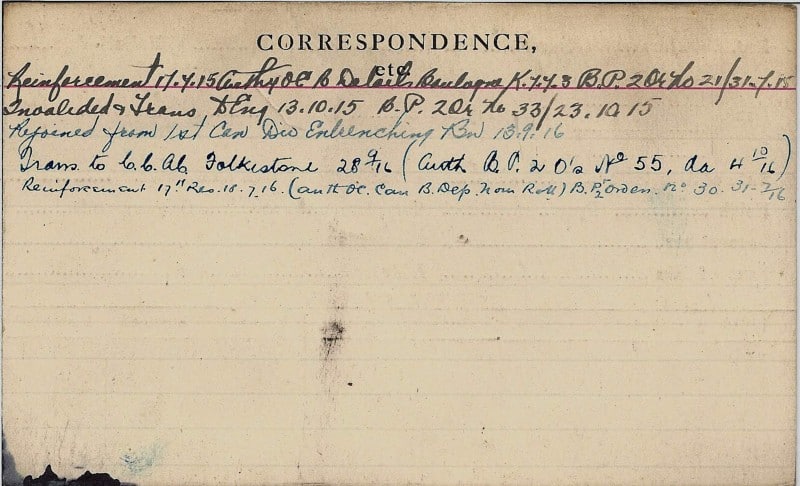 CORRESPONDENCE,
etc.
Reinforcement 17.7.15 Auth 4 OC B Detail Boulogne K.7.7.3 B.P. 2 Or No 21/31.7.15
Invalided & Trans Eng 13.10.15 B.P. 2 Or No 33/23.10.15
Rejoined from 1st Can Div Entrenching Bn 13.9.16
Trans. to C.C.A.C. Folkestone 28 9/16 (Auth B.P. 2 O's No 55, da 4 10/16)
Reinforcement 17" Res. 18.7.16. (auth OC. Can B. Dep. Nom Roll) B.P. 2 Orders. No 30. 31-7/16